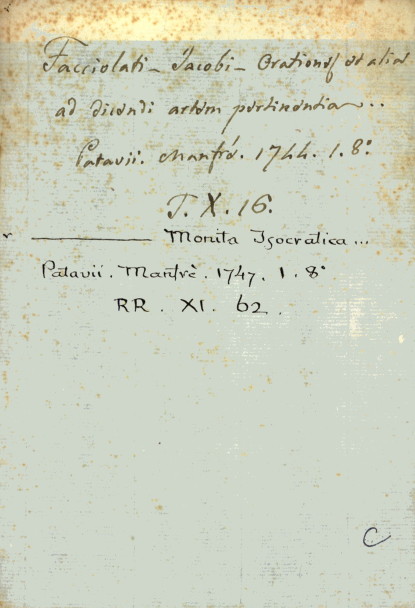 Facciolati - Jacobi - Orationes et alia
ad dicendi artem pertinentia...
Patavii. Manfrè. 1744. 1. 8°
T. X. 16.
——— Monita Isocratica...
Patavii. Manfrè. 1747. 1. 8°
RR. XI. 62.
C